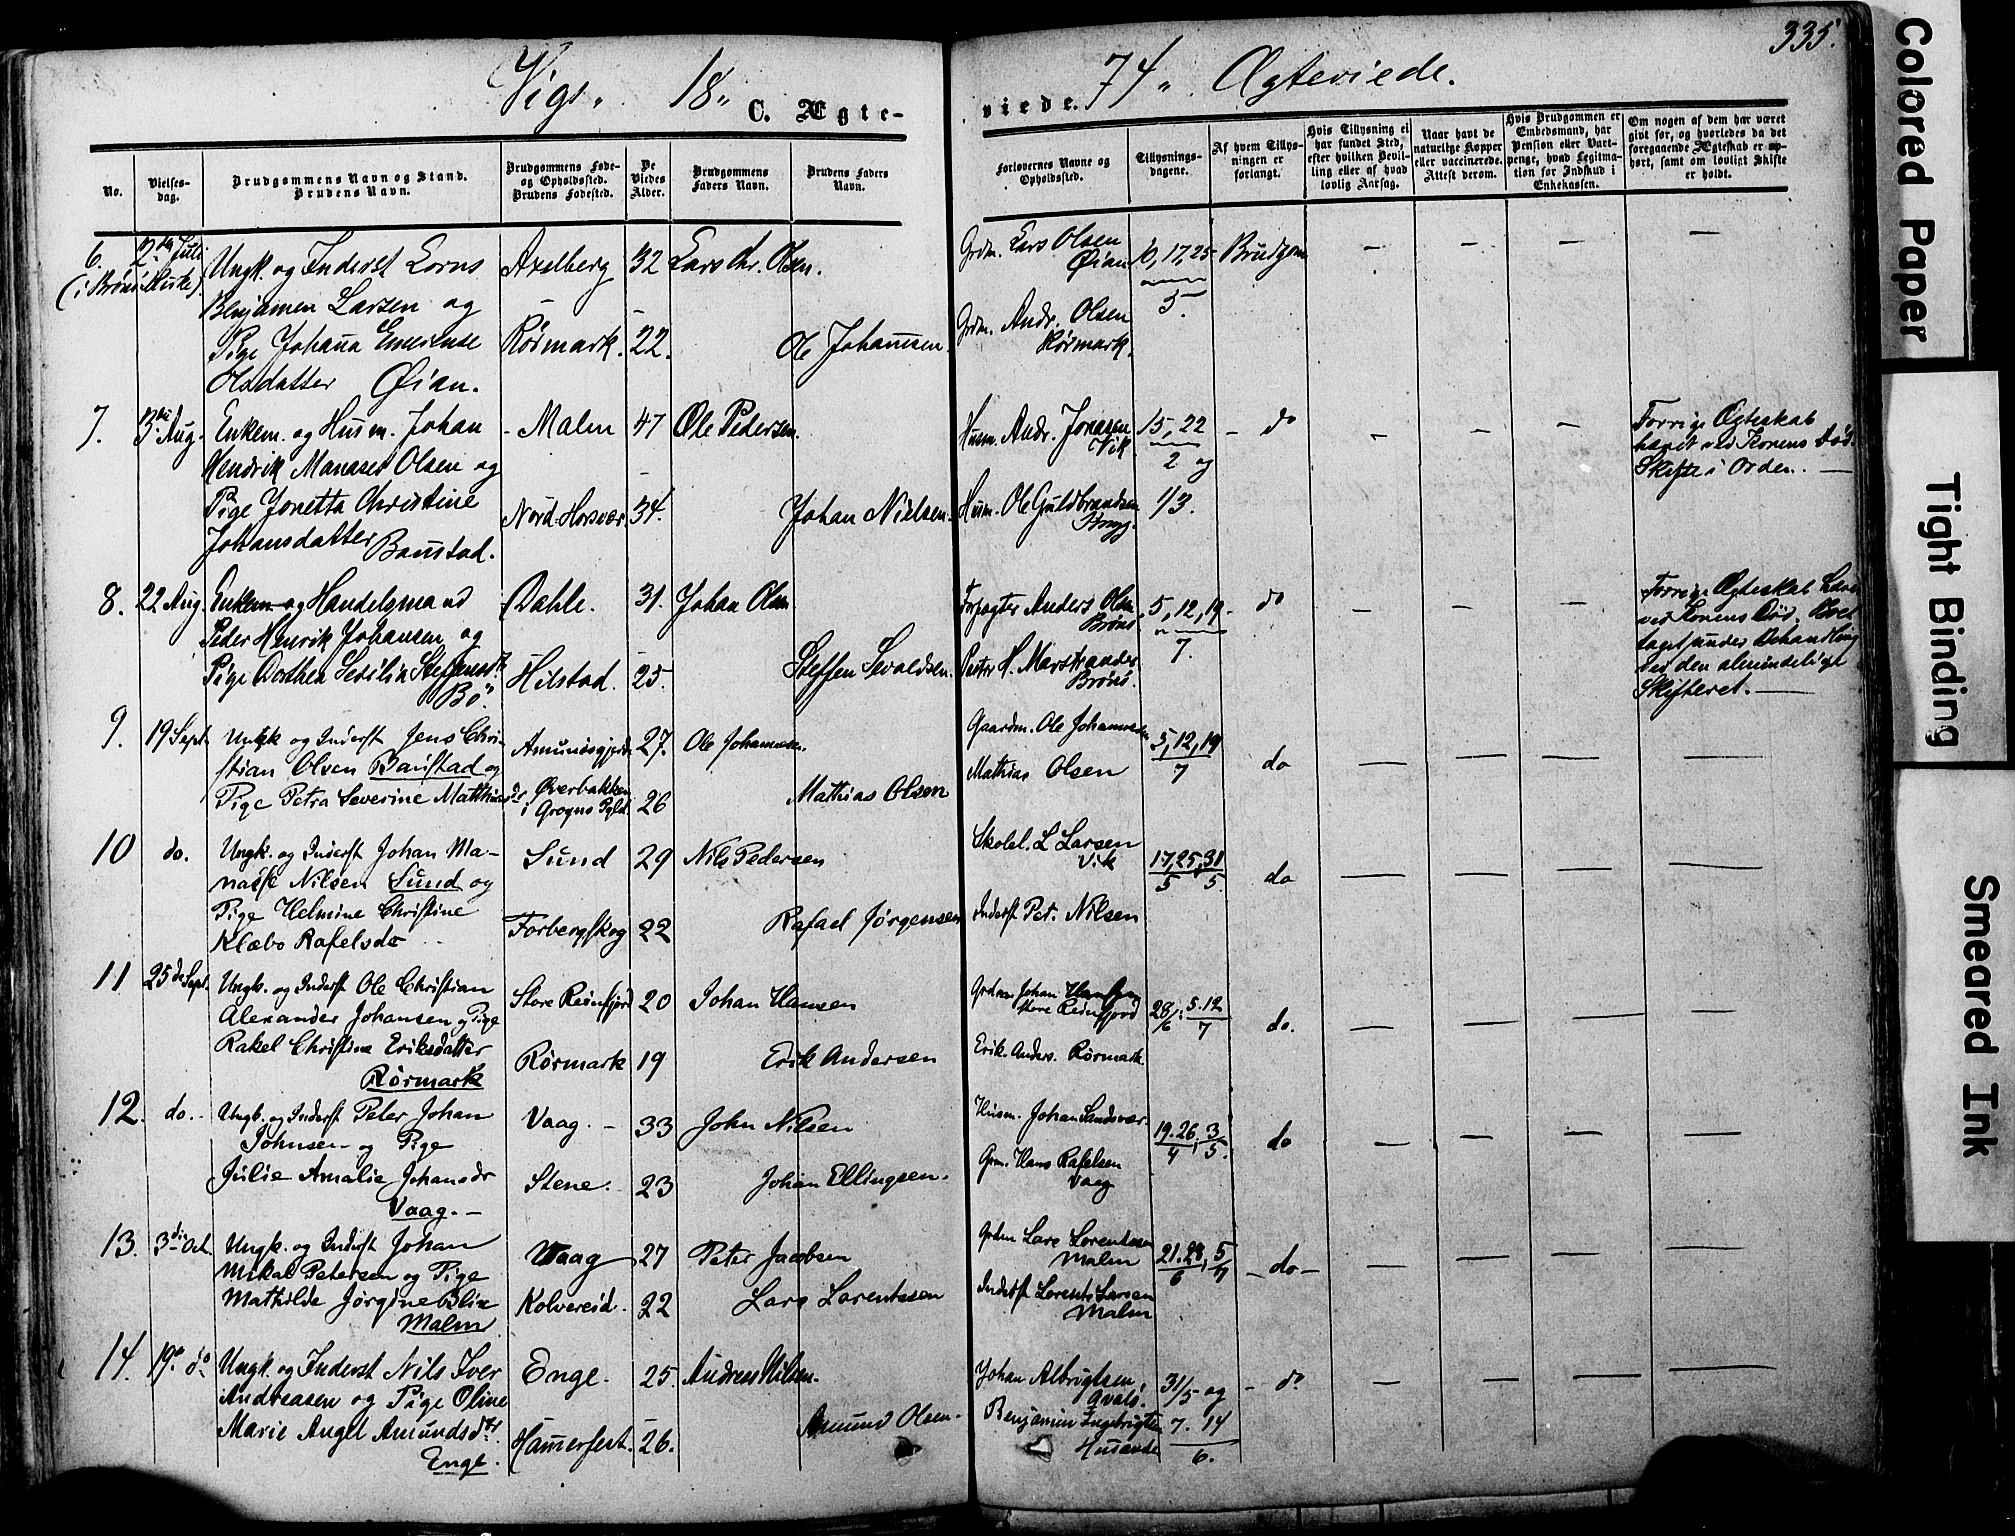 335.
Vigs. 18" C. Ægte-
viede. 74" Ægteviede.
No.
Vielses-
dag.
Brudgommens Navn og Stand.
Brudens Navn.
Brudgommens Føde-
og Opholdssted.
Brudens Fødested.
De
Viedes
Alder.
Brudgommens
Faders Navn.
Brudens Faders
Navn.
Forlovernes Navne og
Opholdssted.
Tillysnings-
dagene.
Af hvem Tillys-
ningen er
forlangt.
Hvis Tillysning ei
har fundet Sted,
efter hvilken Bevil-
ling eller af hvad
lovlig Aarsag.
Naar havt de
naturlige Kopper
eller vaccinerede.
Attest derom.
Hvis Brudgommen er
Embedsmand, har
Pension eller Vart-
penge, hvad Legitima-
tion for Indskud i
Enkekassen.
Om nogen af dem har været
gift før, og hvorledes da det
foregaaende Ægteskab er op-
hørt, samt om lovligt Skifte
er holdt.
6.
(i Brønø Kirke)
Ungk. og Inderst Lorns
Benjamen Larsen og
Pige Johana Ernestine
Olsdatter Øian.
Axelberg 32 Lars Chr. Olsen.
Rørmark. 22. Ole Johannsen.
Grdm. Lars Olsen
Øian
Grdm. Andr. Olsen
Rørmark.
10, 17, 25
5.
Brudgom
— — — —
7. Aug.
Enkem. og Husm. Johan
Hendrik Manases Olsen og
Pige Jonetta Christine
Johansdatter Baustad.
Malm 47 Ole Pedersen.
Nord-Horsvær 34. Johan Nielsen.
Husm. Andr. Jonasen
Vik.
Husm. Ole Guldbrandsen
15, 22
2 og
1/3.
do
— — —
Forrige Ægteskab
hævet ved Konens Død
Skifte i Orden. —
8. 22 Aug.
Enkem og Handelsmand
Peder Henrik Johansen og
Pige Dorthea Sedilia
Bø.
Dahle. 31. Johan Olsen
Hilstad. 25. Steffen Sevaldsen.
Forpagter Anders Olsen
Brønø.
H. Marstrander
Brønø.
5, 12, 19
7.
do
— — —
Forrige Ægteskab
ved Konens Død.
taget under Behandling
ved den almindelige
Skifteret. —
9. 19 Sept.
Ungk og Inderst Jens Chri-
stian Olsen Baustad og
Pige Petra Severine
27. Ole Johannesen.
Øverbakken
26 Mathias Olsen
Gaardm. Ole Johannesen
Mathias Olsen
5, 12, 19
7
do
— — — —
10 do.
Ungk. og Inderst Johan Ma-
nasse Nilsen Sund og
Pige Helmine Christine
Klæbo Rafelsdr
Sund 29 Nils Pedersen
Forbergskog 22 Rafael Jørgensen
Skolel. L Larsen
Vik
Inderst Pet. Nilsen
17, 25, 31
5 5.
do
— — — —
11 25de Sept.
Ungk. og Inderst Ole Christian
Alexander Johansen og Pige
Rakel Christine Eriksdatter
Rørmark
Store Reinfjord 20 Johan Hansen
Rørmark 19 Erik Andersen
Grdm Johan Hansen
Store Reinfjord
Erik Anders. Rørmark
28/6; 5.12
7
do.
— — — —
12. do.
Ungk. og Inderst Peter Johan
Johnsen og Pige
Julie Amalie Johansdr
Vaag. —
Vaag. 33 John Nilsen
Stene. 23 Johan Ellingsen.
Husm. Johan Sandsvær.
Grm. Hans Rafelsen
Vaag
19.26, 3
4 5.
do
— — — —
13. 3die Oct.
Ungk. og Inderst Johan
Mikal Petersen og Pige
Mathilde Jørgine Blix
Malm
Vaag 27 Peter Jacobsen
Kolvereid. 22 Lars Lorentsen
Grdm Lars Lorentsen
Malm
Inderst Lorents Larsen
Malm
21.28, 5
6 7
— do —
— — — —
14. 19. do.
Ungk. og Inderst Nils Iver
Andreasen og Pige Oline
Marie Angel Amundsdtr
Enge.
Enge. 25. Andreas Nilsen.
Hamerfest. 26. Amund Olsen.
Johan Albrigtsen,
Benjamin Ingebrigtsen
31/5 og
7. 14
6.
do.
— — — —
Colored Paper
Tight Binding
Smeared Ink